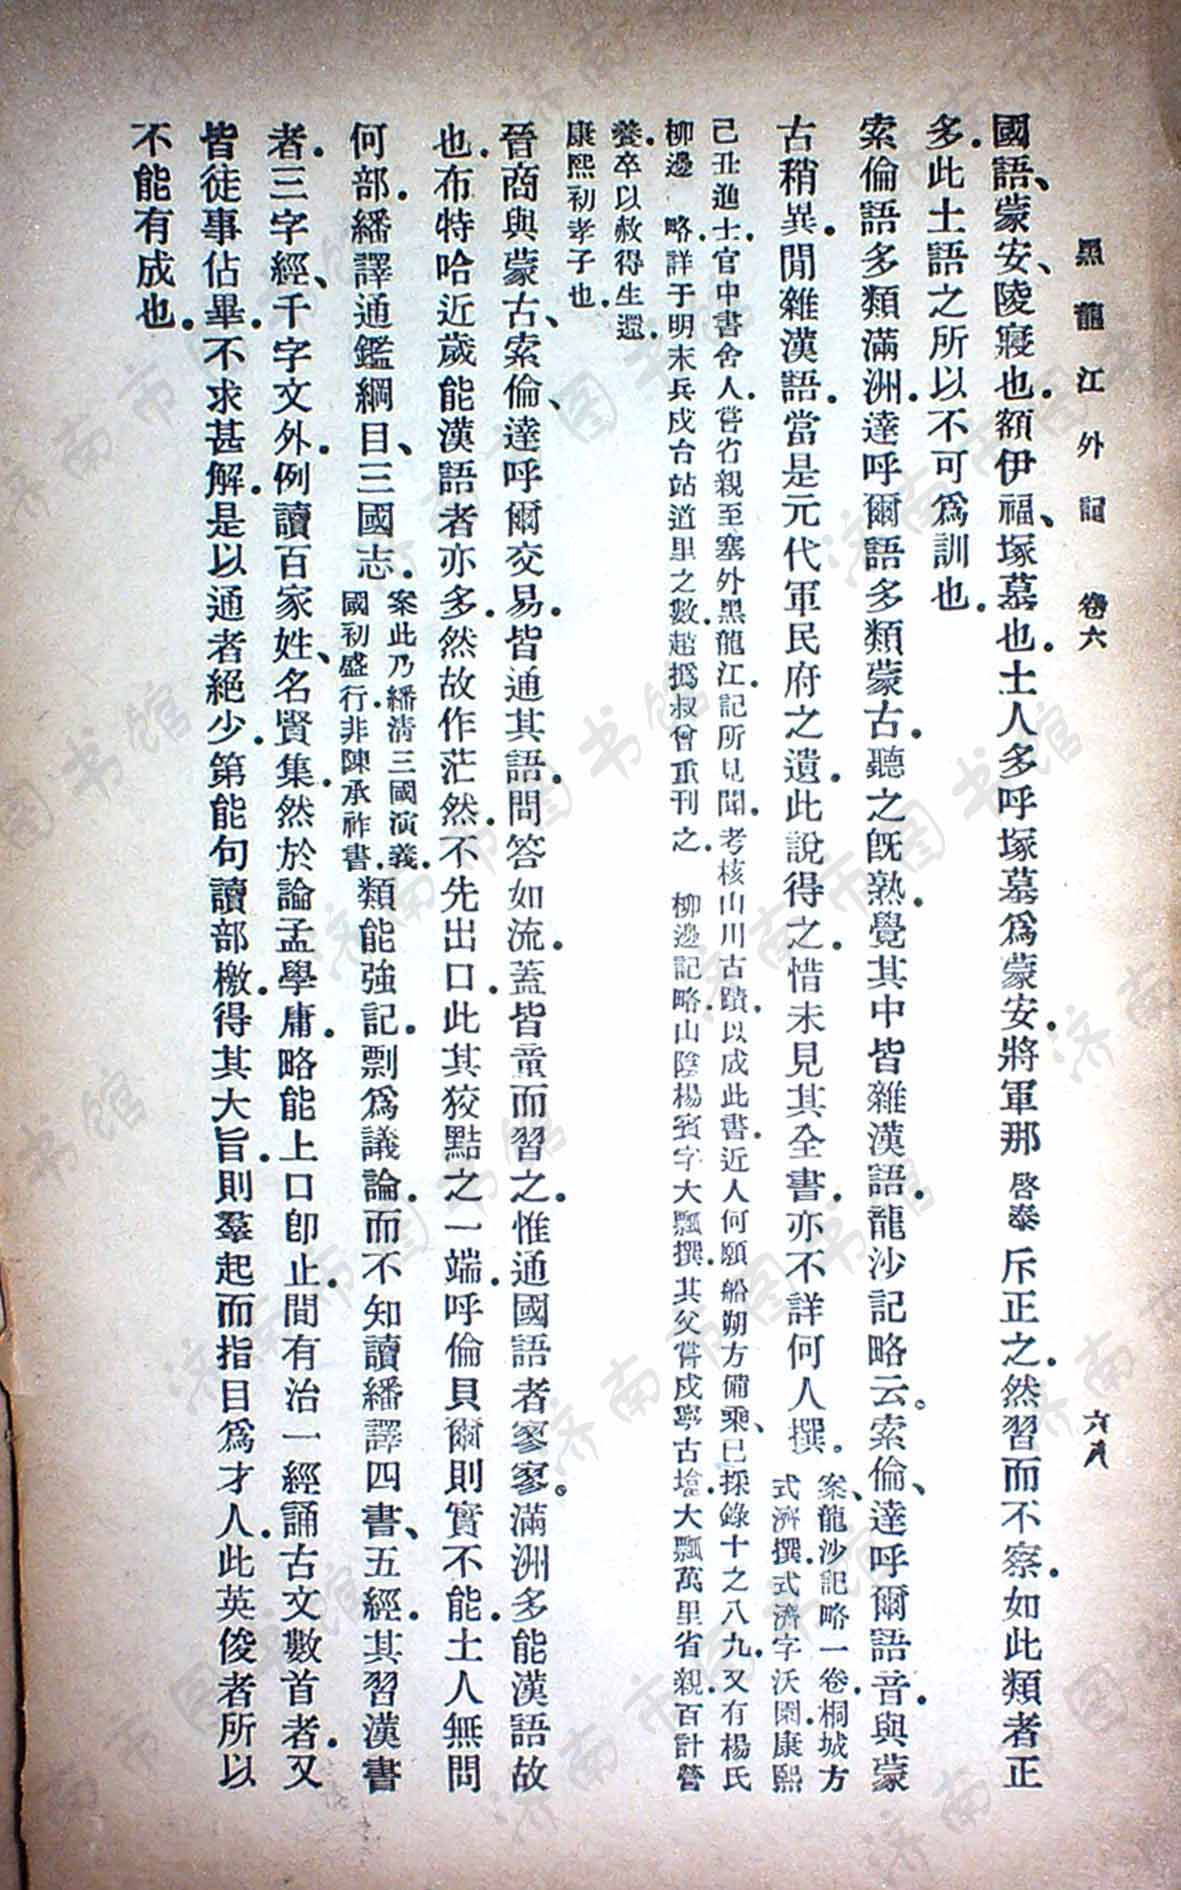 黑龍江外記　卷六　六八
國語、蒙安、陵寢也。額伊福、塚墓也。土人多呼塚墓爲蒙安。將軍那啓泰斥正之。然習而不察。如此類者正
多。此土語之所以不可爲訓也。
索倫語多類滿洲。達呼爾語多類蒙古。聽之旣熟。覺其中皆雜漢語。龍沙記略云。索倫、達呼爾語音。與蒙
古稍異。閒雜漢語。當是元代軍民府之遺。此說得之。惜未見其全書。亦不詳何人撰。案、龍沙記略一卷。桐城方
式濟撰。式濟字沃園。康熙
己丑進士。官中書舍人。嘗省親至塞外黑龍江。記所見聞。考核山川古蹟。以成此書。近人何願船朔方備乘、已採錄十之八九。又有楊氏
柳邊　略。詳于明末兵戍台站道里之數。趙撝叔曾重刊之。　柳邊記略。山陰楊賓字大瓢撰。其父嘗戍寧古塔。大瓢萬里省親。百計營
養。卒以赦得生還。
康熙初孝子也。
晉商與蒙古、索倫、達呼爾交易。皆通其語。問答如流。蓋皆童而習之。惟通國語者寥寥。滿洲多能漢語故
也。布特哈近歲能漢語者亦多。然故作茫然。不先出口。此其狡黠之一端。呼倫貝爾則實不能。土人無問
何部。繙譯通鑑綱目、三國志。案此乃繙淸三國演義。
國初盛行。非陳承祚書。類能強記。剽爲議論。而不知讀繙譯四書、五經。其習漢書
者。三字經、千字文外。例讀百家姓、名賢集。然於論孟學庸。略能上口卽止。間有治一經誦古文數首者。又
皆徒事佔畢。不求甚解。是以通者絕少。第能句讀部檄。得其大旨。則羣起而指目爲才人。此英俊者所以
不能有成也。